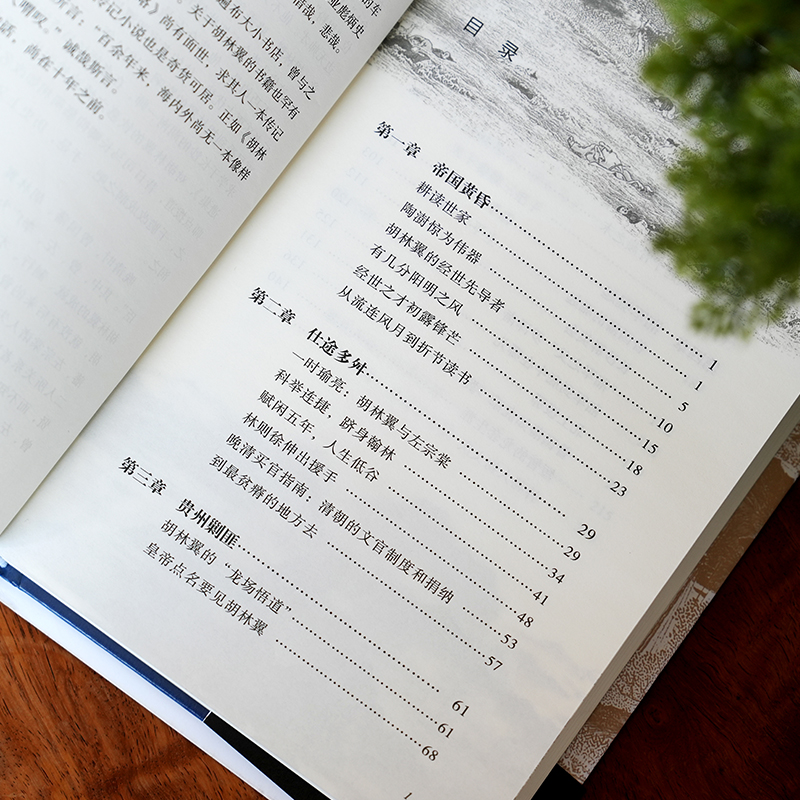 的车
业彪炳史
惜哉，悲哉。
遍布大小书店，曾与之
关于胡林翼的书籍也罕有
略》尚有面世，求其人一本传记
传记小说也是奇货可居。正如《胡林
言：“百余年来，海内外尚无一本像样
喟叹。”诚哉斯言。
话，尚在十年之前。
目录
第一章 帝国黄昏……1
耕读世家……1
陶澍惊为伟器……5
胡林翼的经世先导者……10
有几分阳明之风……15
经世之才初露锋芒……18
从流连风月到折节读书……23
第二章 仕途多舛……29
一时瑜亮：胡林翼与左宗棠……29
科举连捷，跻身翰林……34
赋闲五年，人生低谷……41
林则徐伸出援手……48
晚清买官指南：清朝的文官制度和捐纳……53
到最贫瘠的地方去……57
第三章 贵州剿匪……61
胡林翼的“龙场悟道”……61
皇帝点名要见胡林翼……68
1